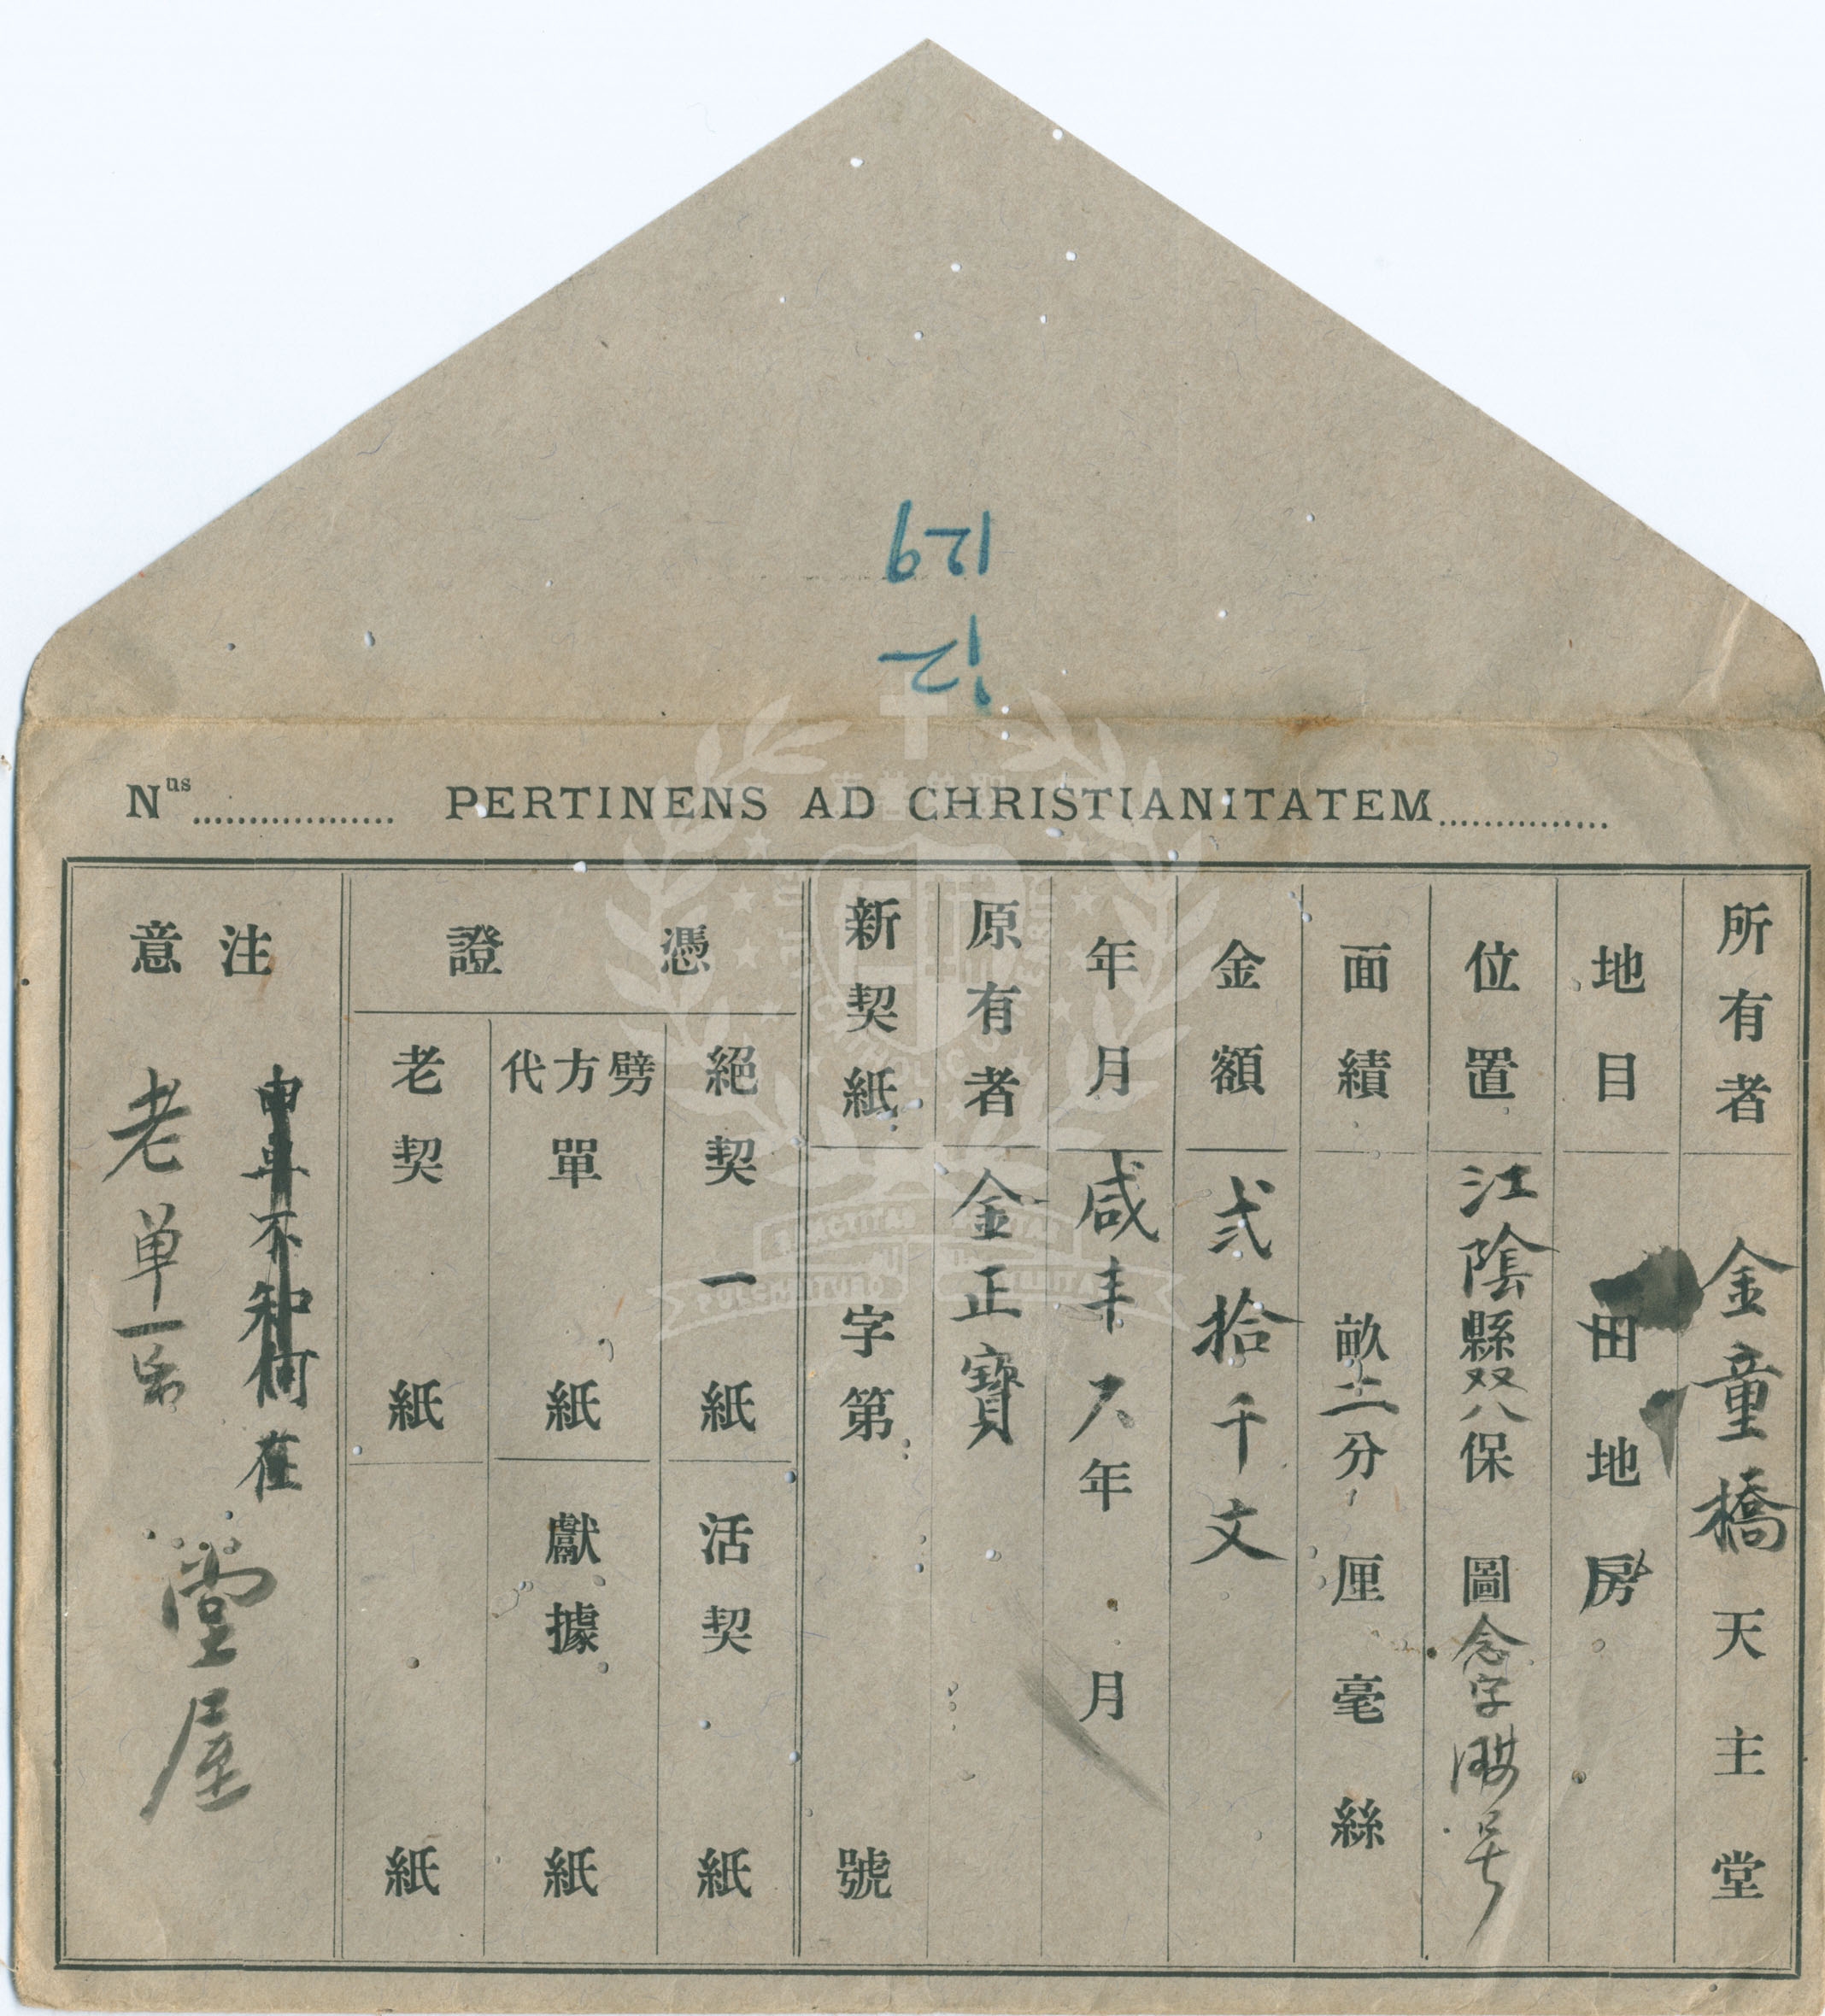 129
12
Nus.................. PERTINENS AD CHRISTIANITATEM...............
所有者 金童橋天主堂
地目 田地房
位置 江陰縣双八保 圖念字 号
面績 畝二分 厘毫絲
金額 弍拾千文
年月 咸丰 年 月
原有者 金正寶
新契紙 字第 號
憑證
絕契 一紙
活契 紙
劈方代單 紙
獻據 紙
老契 紙
紙
注意
申单不知何在
老单一
堂屋